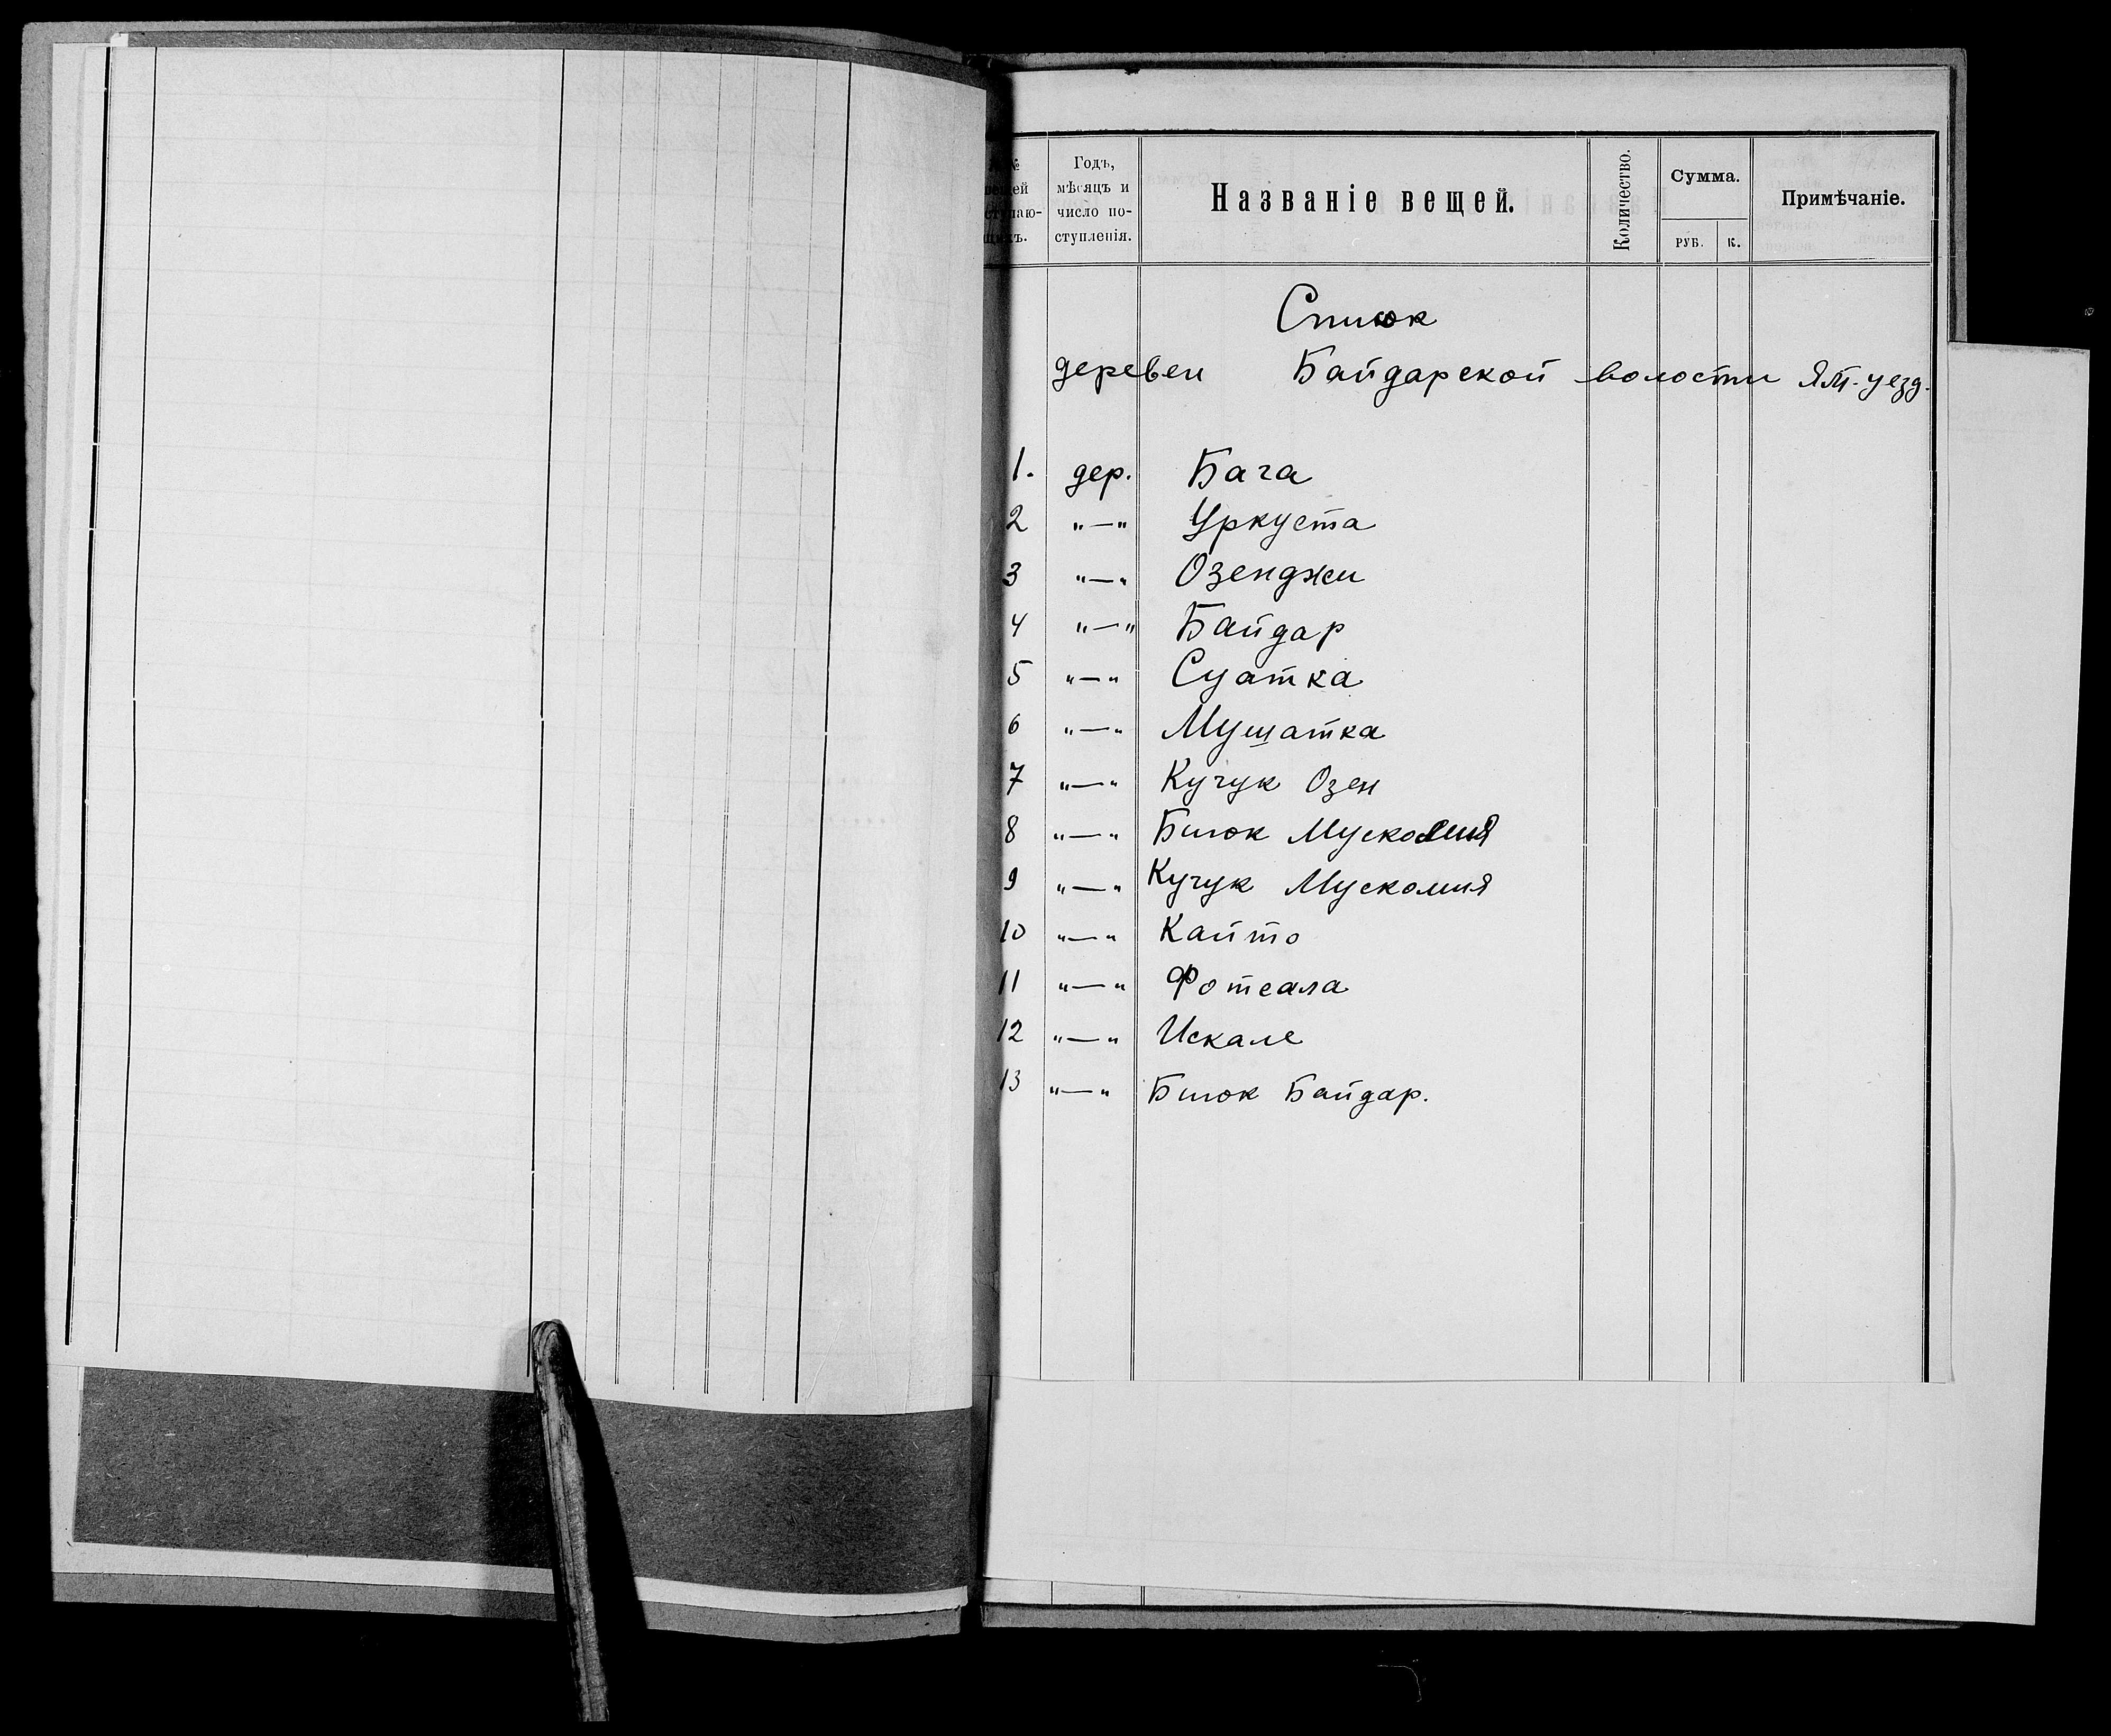 №
вещей
поступаю-
щихъ.
Годъ,
мѣсяцъ и
число по-
ступленія.
Названіе вещей.
Количество.
Сумма.
РУБ. К.
Примѣчаніе.
Список
деревен Байдарской волости Ялт. уезд.
1. дер. Бага
2 "—" Уркуста
3 "—" Озенджи
4 "—" Байдар
5 "—" Суатка
6 "—" Мушатка
7 "—" Кучук Озен
8 "—" Биюк Мускомия
9 "—" Кучук Мускомия
10 "—" Кайто
11 "—" Фотсала
12 "—" Искале
13 "—" Биюк Байдар.